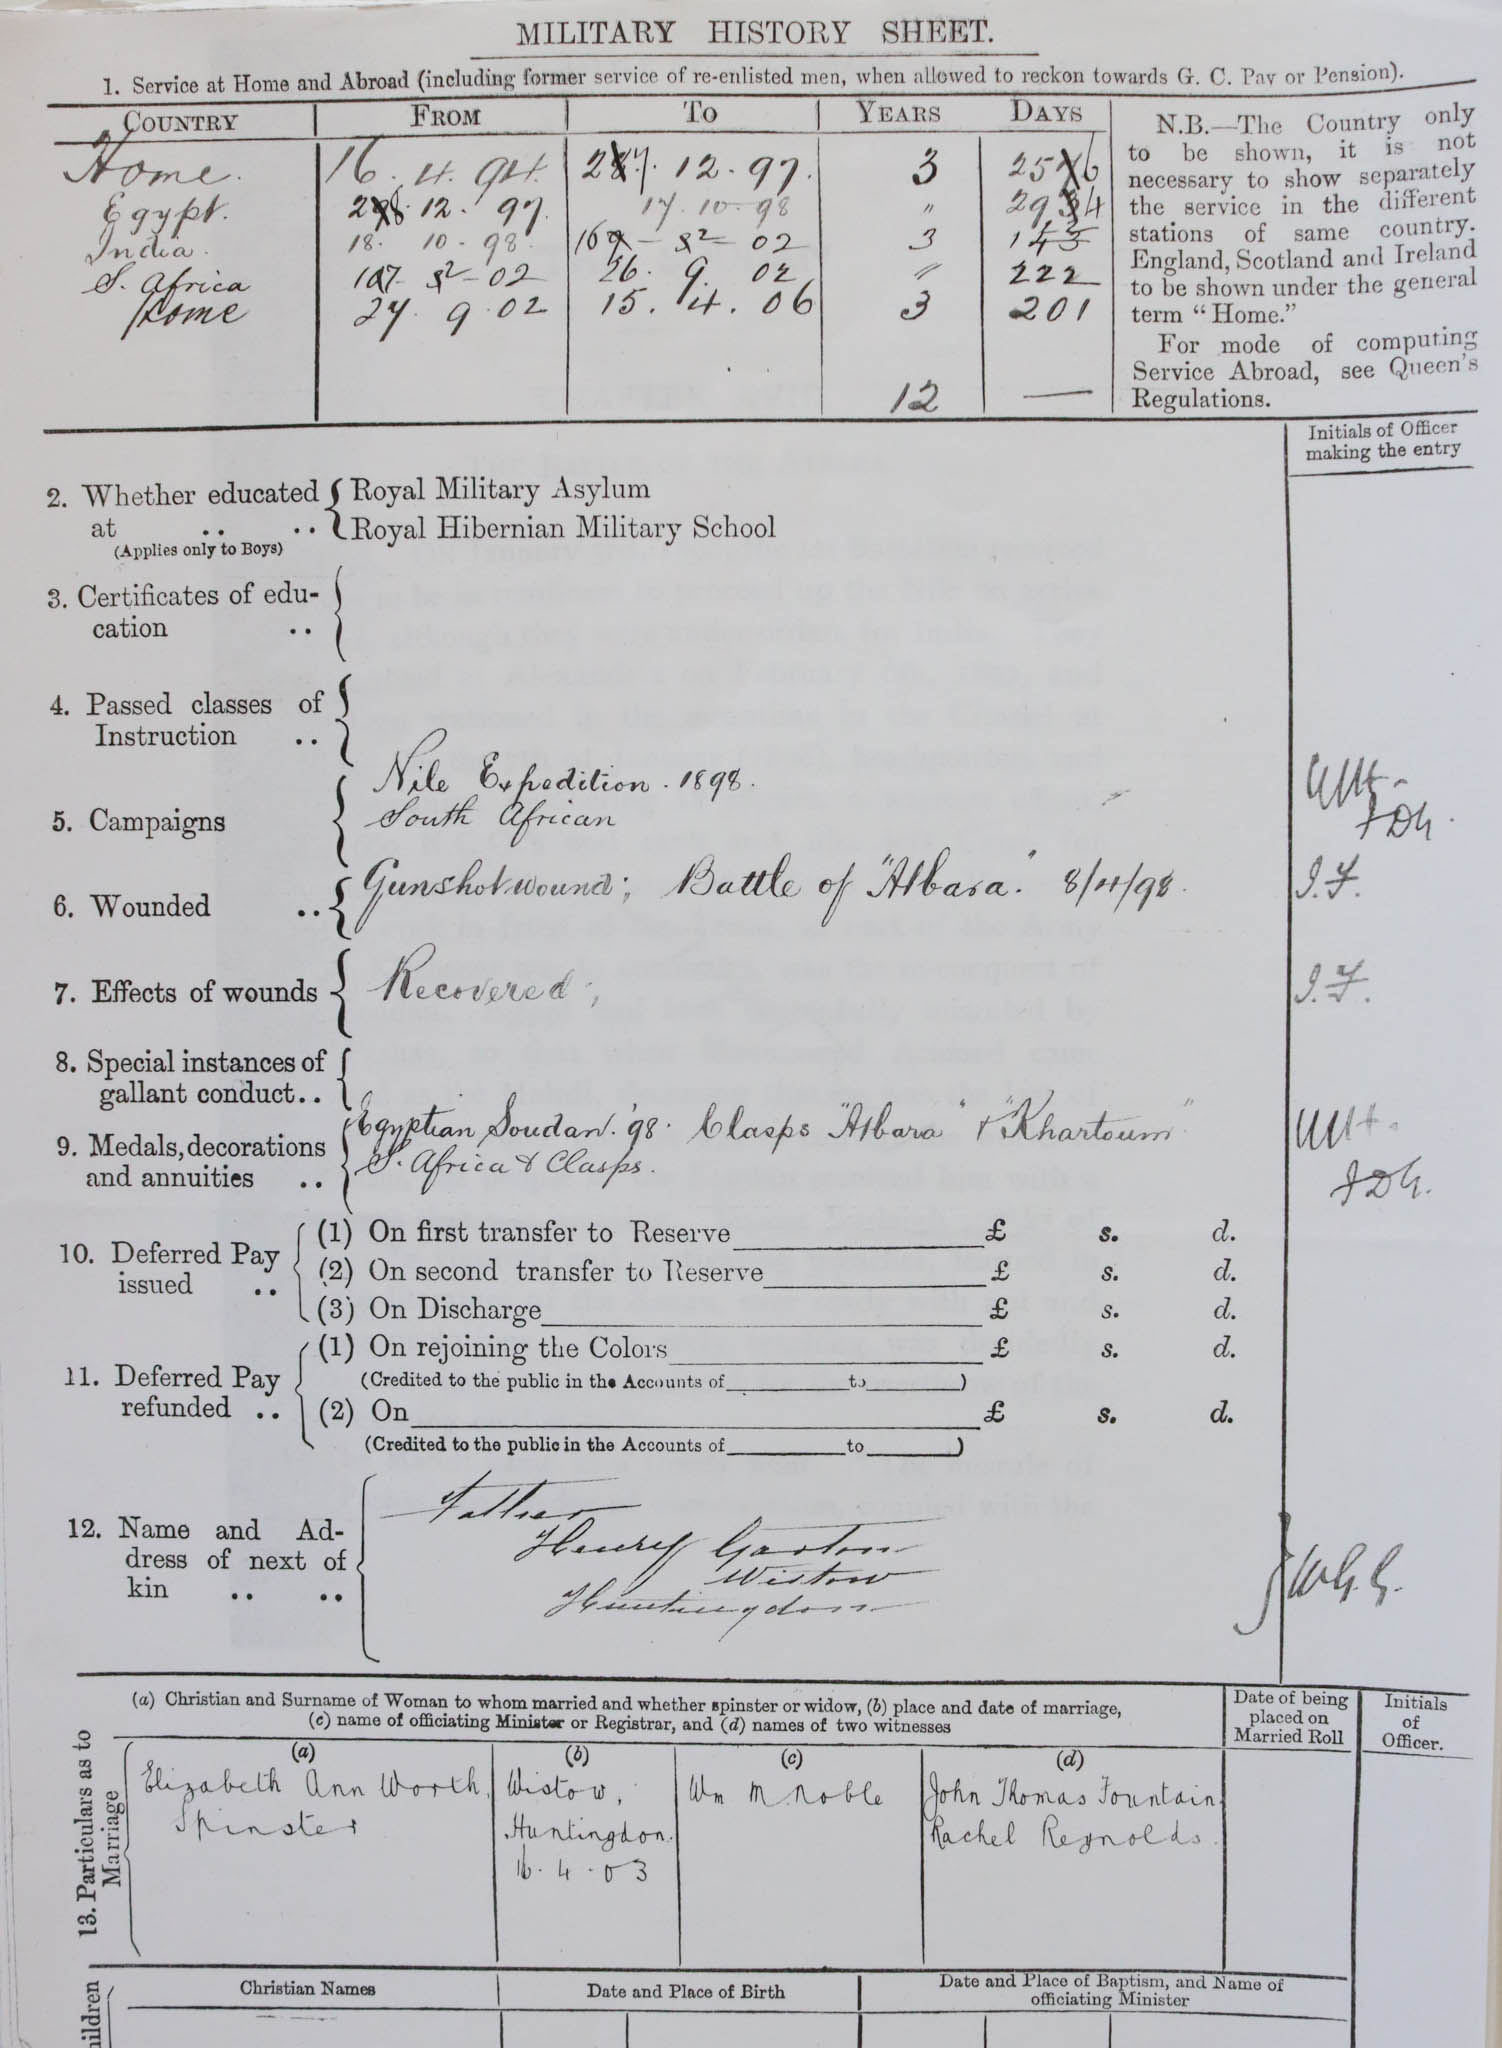 MILITARY HISTORY SHEET.
1. Service at Home and Abroad (including former service of re-enlisted men, when allowed to reckon towards G. C. Pay or Pension).
COUNTRY FROM TO YEARS DAYS
Home. 16. 4. 94. 27. 12. 97. 3 256
Egypt. 28. 12. 97. 17. 10 - 98 " 294
India. 18. 10 - 98. 16 - 2 - 02 3
S. Africa 17 - 2 - 02 26. 9. 02 " 222
Home 27. 9. 02 15. 4. 06 3 201
12 —
N.B.—The Country only
to be shown, it is not
necessary to show separately
the service in the different
stations of same country.
England, Scotland and Ireland
to be shown under the general
term "Home."
For mode of computing
Service Abroad, see Queen's
Regulations.
Initials of Officer
making the entry
2. Whether educated
at .. ..
(Applies only to Boys)
Royal Military Asylum
Royal Hibernian Military School
3. Certificates of edu-
cation ..
4. Passed classes of
Instruction ..
5. Campaigns
Nile Expedition. 1898.
South African
6. Wounded ..
Gunshot wound; Battle of "Atbara." 8/4/98. J.F.
7. Effects of wounds
Recovered; J.F.
8. Special instances of
gallant conduct..
9. Medals, decorations
and annuities ..
Egyptian Soudan. '98. Clasps "Atbara" & "Khartoum"
S. Africa & Clasps.
10. Deferred Pay
issued ..
(1) On first transfer to Reserve £ s. d.
(2) On second transfer to Reserve £ s. d.
(3) On Discharge £ s. d.
11. Deferred Pay
refunded ..
(1) On rejoining the Colors £ s. d.
(Credited to the public in the Accounts of to )
(2) On £ s. d.
(Credited to the public in the Accounts of to )
12. Name and Ad-
dress of next of
kin .. ..
Father
Henry Gaston
Wistow
Huntingdon
W.G.G.
13. Particulars as to
Marriage
(a) Christian and Surname of Woman to whom married and whether spinster or widow, (b) place and date of marriage,
(c) name of officiating Minister or Registrar, and (d) names of two witnesses
Date of being
placed on
Married Roll
Initials
of
Officer.
(a) (b) (c) (d)
Elizabeth Ann Worth,
Spinster
Wistow,
Huntingdon.
16. 4. 03
Wm M. Noble
John Thomas Fountain.
Rachel Reynolds.
Christian Names
Date and Place of Birth
Date and Place of Baptism, and Name of
officiating Minister